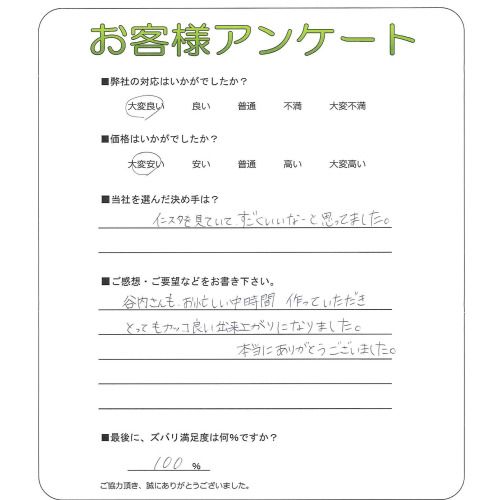 お客様アンケート
■弊社の対応はいかがでしたか？
大変良い 良い 普通 不満 大変不満
■価格はいかがでしたか？
大変安い 安い 普通 高い 大変高い
■当社を選んだ決め手は？
インスタを見ていて、すごくいいなーと思ってました。
■ご感想・ご要望などをお書き下さい。
谷内さんも、お忙しい中時間 作っていただき
とってもカッコ良い出来上がりになりました。
本当にありがとうございました。
■最後に、ズバリ満足度は何%ですか？
100 %
ご協力頂き、誠にありがとうございました。